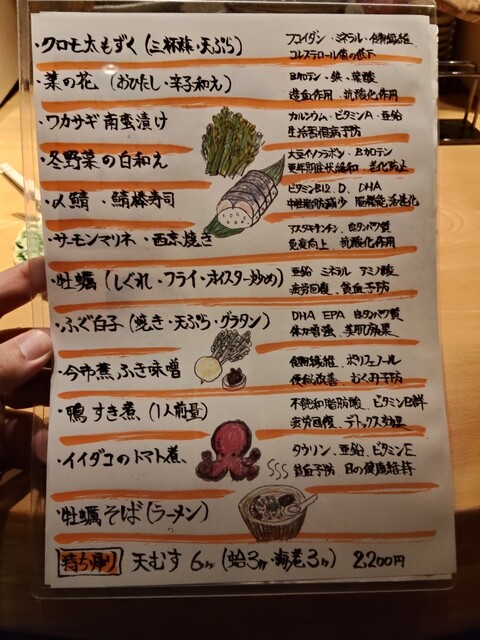 ・クロモ太もずく(三杯酢・天ぷら)
フコイダン・ミネラル・食物繊維
コレステロール値の低下
・菜の花 (おひたし・辛子和え)
Bカロテン・鉄・葉酸
造血作用、抗酸化作用
・ワカサギ南蛮漬け
カルシウム・ビタミンA・亜鉛
生活習慣病予防
・冬野菜の白和え
大豆イソフラボン・Bカロテン
更年期症状緩和、老化防止
・〆鯖、鯖棒寿司
ビタミンB12、D、DHA
中性脂肪減少 脳機能活性化
・サーモンマリネ・西京焼き
アスタキサンチン、良タンパク質
免疫向上、抗酸化作用
・牡蠣(しぐれ・フライ・オイスター炒め)
亜鉛 ミネラル アミノ酸
疲労回復、貧血予防
・ふぐ白子(焼き・天ぷら・グラタン)
DHA EPA 良タンパク質
体力増強、美肌効果
・今市蕪ふき味噌
食物繊維、ポリフェノール
便秘改善、むくみ予防
・鴨すき煮(1人前量)
不飽和脂肪酸、ビタミンB群
疲労回復、デトックス効果
・イイダコのトマト煮、
タウリン、亜鉛、ビタミンE
貧血予防 目の健康維持
・牡蠣そば(ラーメン)
持ち帰り 天むす 6ヶ (蛤3ヶ・海老3ヶ) 2,200円